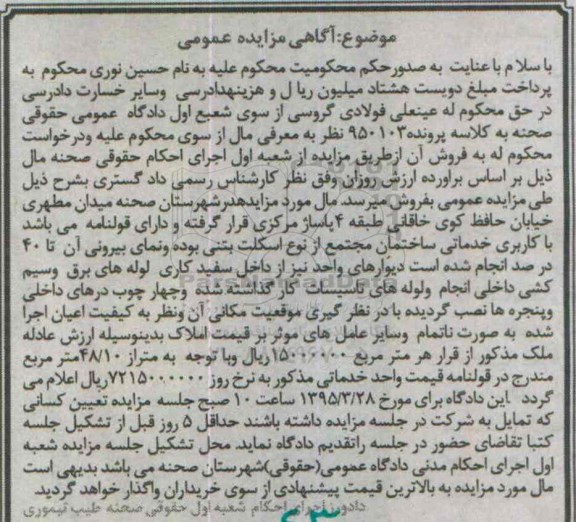 موضوع:آگاهی مزایده عمومی
با سلام با عنایت به صدور حکم محکومیت محکوم علیه به نام حسین نوری محکوم به
پرداخت مبلغ دویست هشتاد میلیون ریال و هزینهدادرسی وسایر خسارت دادرسی
در حق محکوم له عینعلی فولادی گروسی از سوی شعبع اول دادگاه عمومی حقوقی
صحنه به کلاسه پرونده۹۵۰۱۰۳ نظر به معرفی مال از سوی محکوم علیه ودرخواست
محکوم له به فروش آن ازطریق مزایده از شعبه اول اجرای احکام حقوقی صحنه مال
ذیل بر اساس براورده ارزش روزان وفق نظر کارشناس رسمی داد گستری بشرح ذیل
طی مزایده عمومی بفروش میرسد. مال مورد مزایدهدرشهرستان صحنه میدان مطهری
خیابان حافظ کوی خاقانی طبقه ۴پاساژ مرکزی قرار گرفته و دارای قولنامه می باشد
با کاربری خدماتی ساختمان مجتمع از نوع اسکلت بتنی بوده ونمای بیرونی آن تا ۴۰
در صد انجام شده است دیوارهای واحد نیز از داخل سفید کاری لوله های برق وسیم
کشی داخلی انجام ولوله های تاسیسات کار گذاشته شده وچهار چوب درهای داخلی
وپنجره ها نصب گردیده با در نظر گیری موقعیت مکانی آن ونظر به کیفیت اعیان اجرا
شده به صورت ناتمام وسایر عامل های موثر بر قیمت املاک بدینوسیله ارزش عادله
ملک مذکور از قرار هر متر مربع ریال وبا توجه به متراژ ۴۸/۱۰متر مربع
مندرج در قولنامه قیمت واحد خدماتی مذکور به نرخ روز ۷۲۱۵۰۰۰۰۰۰ریال اعلام می
گردد .این دادگاه برای مورخ ۱۳۹۵/۳/۲۸ ساعت ۱۰ صبح جلسه مزایده تعیین کسانی
که تمایل به شرکت در جلسه مزایده داشته باشند حداقل ۵ روز قبل از تشکیل جلسه
کتبا تقاضای حضور در جلسه راتقدیم دادگاه نماید. محل تشکیل جلسه مزایده شعبه
اول اجرای احکام مدنی دادگاه عمومی(حقوقی)شهرستان صحنه می باشد بدیهی است
مال مورد مزایده به بالاترین قیمت پیشنهادی از سوی خریداران واگذار خواهد گردید.
دادورز اجرای احکام شعبه اول حقوقی صحنه طیب تیموری